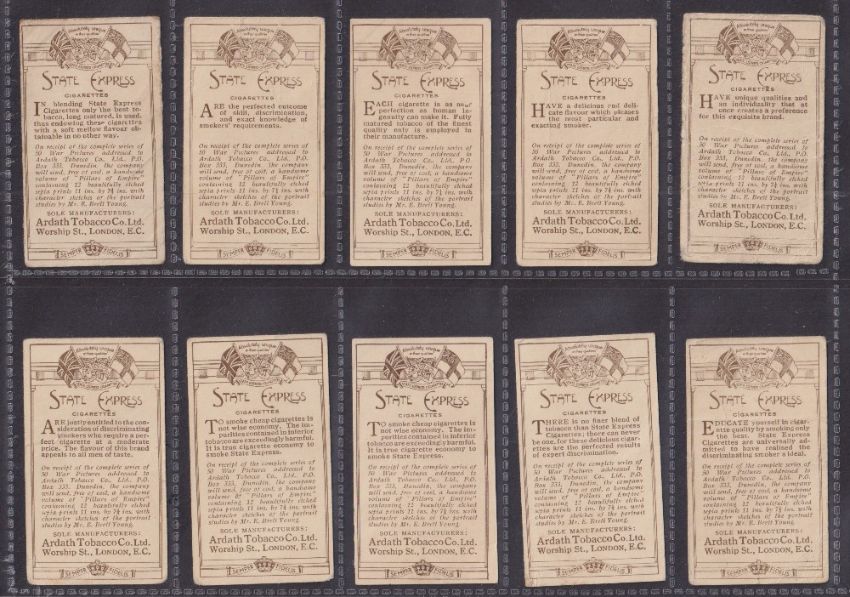 Absolutely unique
in their qualities
STATE EXPRESS
CIGARETTES
IN blending State Express
Cigarettes only the best to-
bacco, long matured, is used,
thus endowing these cigarettes
with a soft mellow flavour ob-
tainable in no other way.
On receipt of the complete series of
50 War Pictures addressed to
Ardath Tobacco Co., Ltd., P.O.
Box 333, Dunedin, the company
will send, free of cost, a handsome
volume of "Pillars of Empire"
containing 12 beautifully etched
sepia prints 11 ins. by 7½ ins. with
character sketches of the portrait
studies by Mr. E. Brett Young.
SOLE MANUFACTURERS:
Ardath Tobacco Co. Ltd.
Worship St., LONDON, E.C.
SEMPER FIDELIS
Absolutely unique
in their qualities
STATE EXPRESS
CIGARETTES
ARE the perfected outcome
of skill, discrimination,
and exact knowledge of
smokers' requirements.
On receipt of the complete series of
50 War Pictures addressed to
Ardath Tobacco Co., Ltd., P.O.
Box 333, Dunedin, the company
will send, free of cost, a handsome
volume of "Pillars of Empire"
containing 12 beautifully etched
sepia prints 11 ins. by 7½ ins. with
character sketches of the portrait
studies by Mr. E. Brett Young.
SOLE MANUFACTURERS:
Ardath Tobacco Co. Ltd.
Worship St., LONDON, E.C.
SEMPER FIDELIS
Absolutely unique
in their qualities
STATE EXPRESS
CIGARETTES
EACH cigarette is as near
perfection as human in-
genuity can make it. Fully
matured tobacco of the finest
quality only is employed in
their manufacture.
On receipt of the complete series of
50 War Pictures addressed to
Ardath Tobacco Co., Ltd., P.O.
Box 333, Dunedin, the company
will send, free of cost, a handsome
volume of "Pillars of Empire"
containing 12 beautifully etched
sepia prints 11 ins. by 7½ ins. with
character sketches of the portrait
studies by Mr. E. Brett Young.
SOLE MANUFACTURERS:
Ardath Tobacco Co. Ltd.
Worship St., LONDON, E.C.
SEMPER FIDELIS
Absolutely unique
in their qualities
STATE EXPRESS
CIGARETTES
HAVE a delicious and deli-
cate flavour which pleases
the most particular and
exacting smoker.
On receipt of the complete series of
50 War Pictures addressed to
Ardath Tobacco Co., Ltd., P.O.
Box 333, Dunedin, the company
will send, free of cost, a handsome
volume of "Pillars of Empire"
containing 12 beautifully etched
sepia prints 11 ins. by 7½ ins. with
character sketches of the portrait
studies by Mr. E. Brett Young.
SOLE MANUFACTURERS:
Ardath Tobacco Co. Ltd.
Worship St., LONDON, E.C.
SEMPER FIDELIS
Absolutely unique
in their qualities
STATE EXPRESS
CIGARETTES
HAVE unique qualities and
an individuality that at
once creates a preference
for this exquisite brand.
On receipt of the complete series of
50 War Pictures addressed to
Ardath Tobacco Co., Ltd., P.O.
Box 333, Dunedin, the company
will send, free of cost, a handsome
volume of "Pillars of Empire"
containing 12 beautifully etched
sepia prints 11 ins. by 7½ ins. with
character sketches of the portrait
studies by Mr. E. Brett Young.
SOLE MANUFACTURERS:
Ardath Tobacco Co. Ltd.
Worship St., LONDON, E.C.
SEMPER FIDELIS
Absolutely unique
in their qualities
STATE EXPRESS
CIGARETTES
ARE justly entitled to the con-
sideration of discriminating
smokers who require a per-
fect cigarette at a moderate
price. The flavour of this brand
appeals to all men of taste.
On receipt of the complete series of
50 War Pictures addressed to
Ardath Tobacco Co., Ltd., P.O.
Box 333, Dunedin, the company
will send, free of cost, a handsome
volume of "Pillars of Empire"
containing 12 beautifully etched
sepia prints 11 ins. by 7½ ins. with
character sketches of the portrait
studies by Mr. E. Brett Young.
SOLE MANUFACTURERS:
Ardath Tobacco Co. Ltd.
Worship St., LONDON, E.C.
SEMPER FIDELIS
Absolutely unique
in their qualities
STATE EXPRESS
CIGARETTES
TO smoke cheap cigarettes is
not wise economy. The im-
purities contained in inferior
tobacco are exceedingly harmful.
It is true cigarette economy to
smoke State Express.
On receipt of the complete series of
50 War Pictures addressed to
Ardath Tobacco Co., Ltd., P.O.
Box 333, Dunedin, the company
will send, free of cost, a handsome
volume of "Pillars of Empire"
containing 12 beautifully etched
sepia prints 11 ins. by 7½ ins. with
character sketches of the portrait
studies by Mr. E. Brett Young.
SOLE MANUFACTURERS:
Ardath Tobacco Co. Ltd.
Worship St., LONDON, E.C.
SEMPER FIDELIS
Absolutely unique
in their qualities
STATE EXPRESS
CIGARETTES
TO smoke cheap cigarettes is
not wise economy. The im-
purities contained in inferior
tobacco are exceedingly harmful.
It is true cigarette economy to
smoke State Express.
On receipt of the complete series of
50 War Pictures addressed to
Ardath Tobacco Co., Ltd., P.O.
Box 333, Dunedin, the company
will send, free of cost, a handsome
volume of "Pillars of Empire"
containing 12 beautifully etched
sepia prints 11 ins. by 7½ ins. with
character sketches of the portrait
studies by Mr. E. Brett Young.
SOLE MANUFACTURERS:
Ardath Tobacco Co. Ltd.
Worship St., LONDON, E.C.
SEMPER FIDELIS
Absolutely unique
in their qualities
STATE EXPRESS
CIGARETTES
THERE is no finer blend of
tobacco than State Express
Cigarettes; there can never
be one, for these delicious cigar-
ettes are the perfected results
of expert discrimination.
On receipt of the complete series of
50 War Pictures addressed to
Ardath Tobacco Co., Ltd., P.O.
Box 333, Dunedin, the company
will send, free of cost, a handsome
volume of "Pillars of Empire"
containing 12 beautifully etched
sepia prints 11 ins. by 7½ ins. with
character sketches of the portrait
studies by Mr. E. Brett Young.
SOLE MANUFACTURERS:
Ardath Tobacco Co. Ltd.
Worship St., LONDON, E.C.
SEMPER FIDELIS
Absolutely unique
in their qualities
STATE EXPRESS
CIGARETTES
EDUCATE yourself in cigar-
ette quality by smoking only
the best. State Express
Cigarettes are universally ad-
mitted to have realised the
discriminating smoker's ideal.
On receipt of the complete series of
50 War Pictures addressed to
Ardath Tobacco Co., Ltd., P.O.
Box 333, Dunedin, the company
will send, free of cost, a handsome
volume of "Pillars of Empire"
containing 12 beautifully etched
sepia prints 11 ins. by 7½ ins. with
character sketches of the portrait
studies by Mr. E. Brett Young.
SOLE MANUFACTURERS:
Ardath Tobacco Co. Ltd.
Worship St., LONDON, E.C.
SEMPER FIDELIS